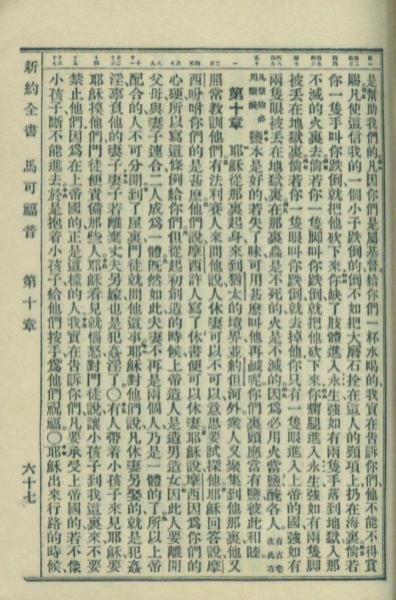 是幫助我們的凡因你們是屬基督給你們一杯水喝的我實在告訴你們他不能不得賞
賜凡使這信我的一個小子跌倒的倒不如把大磨石拴在這人的頸項上扔在海裏倘若
你一隻手叫你跌倒就把他砍下來你缺了肢體進入永生強如有兩隻手落到地獄入那
不滅的火裏去倘若你一隻脚叫你跌倒就把他砍下來你瘸腿進入永生強如有兩隻脚
被丟在地獄裏倘若你一隻眼叫你跌倒就去掉他你只有一隻眼進入上帝的國強如有
兩隻眼被丟在地獄裏在那裏蟲是不死的火是不滅的因爲必用火當鹽醃各人
鹽本是好的若失了味可用甚麼叫他再鹹呢你們裏頭應當有鹽彼此和睦
第十章 耶穌從那裏起身來到猶太的境界並約但河外衆人又聚集到他那裏他又
照常教訓他們有法利賽人來問他說人休妻可以不可以意思要試探他耶穌回答說摩
西吩咐你們的是甚麼他們說摩西許人寫了休書便可以休妻耶穌說摩西因爲你們的
心硬所以寫這條例給你們但從起初創造的時候上帝造人是造男造女因此人要離開
父母與妻子連合二人成爲一體既然如此夫妻不再是兩個人乃是一體的了所以上帝
配合的人不可分開到了屋裏門徒就問他這事耶穌對他們說凡休妻另娶的就是犯姦
淫辜負他的妻子妻子若離棄丈夫另嫁也是犯姦淫了〇有人帶着小孩子來見耶穌要
耶穌摸他們門徒便責備那些人耶穌看見就惱怒對門徒說讓小孩子到我這裏來不要
禁止他們因爲在上帝國的正是這樣的人我實在告訴你們凡要承受上帝國的若不像
小孩子斷不能進去於是抱着小孩子給他們按手爲他們祝福〇耶穌出來行路的時候
新約全書 馬可福音 第十章 六十七